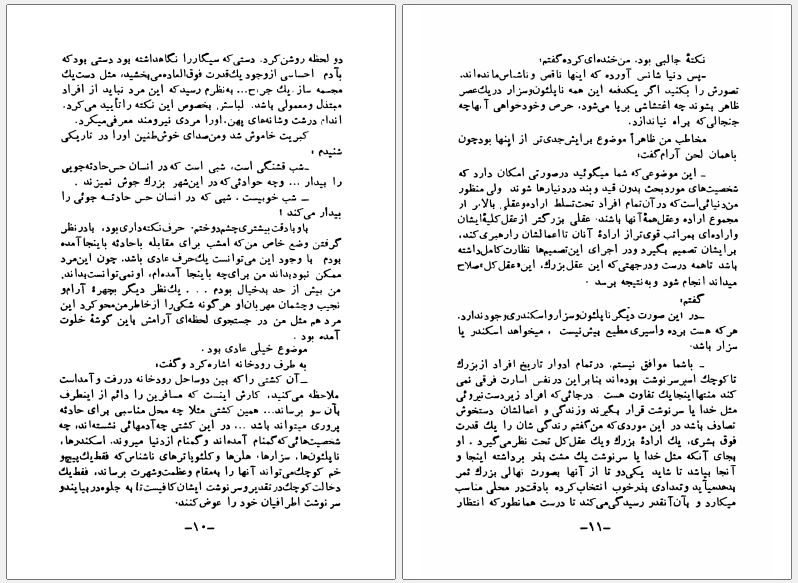 دو لحظه روشن کرد. دستی که سیگار را نگاهداشته بود دستی بود که
بآدم احساسی از وجود یک قدرت فوق العاده می بخشید، مثل دست یک
مجسمه ساز. یک جراح... به نظرم رسید که این مرد نباید از افراد
مبتذل و معمولی باشد. لباسش بخصوص این نکته را تأیید می کرد.
اندام درشت و شانه های پهن، او را مردی نیرومند معرفی میکرد.
کبریت خاموش شد و من صدای خوش طنین او را در تاریکی
شنیدم :
ـ شب قشنگی است، شبی است که در انسان حس حادثه جویی
را بیدار ... و چه حوادثی که در این شهر بزرگ جوش نمیزند .
ـ شب خوبیست . شبی که در انسان حس حادثه جوئی را
بیدار می کند !
باو با دقت بیشتری چشم دوختم. حرف نکته داری بود، با در نظر
گرفتن وضع خاص من که امشب برای مقابله با حادثه باینجا آمده
بودم با وجود این می توانست یک حرف عادی باشد. چون این مرد
ممکن نبود بداند من برای چه باینجا آمده ام، او نمی توانست بداند.
من بیش از حد بدخیال بودم . . . یک نظر دیگر بچهرهٔ آرام و
نجیب و چشمان مهربان او هر گونه شکی را از خاطر من محو کرد این
مرد هم مثل من در جستجوی لحظه ای آرامش باین گوشهٔ خلوت
آمده بود .
موضوع خیلی عادی بود .
به طرف رودخانه اشاره کرد و گفت:
ـ آن کشتی را که بین دو ساحل رودخانه در رفت و آمد است
ملاحظه می کنید، کارش اینست که مسافرین را دائم از اینطرف
بآن سو برساند... همین کشتی مثلا چه محل مناسبی برای حادثه
پروری میتواند باشد ... در این کشتی چه آدمهائی نشسته اند، چه
شخصیت هائی که گمنام آمده اند و گمنام از دنیا میروند. اسکندرها،
ناپلئون ها، سزارها، هلن ها و کلئوپاترهای ناشناس که فقط یک پیچ و
خم کوچک می تواند آنها را بمقام و عظمت و شهرت برساند، فقط یک
دخالت کوچک در تقدیر و سرنوشت ایشان کافیست تا به جلوه در بیایند و
سرنوشت اطرافیان خود را عوض کنند.
-۱۰-
نکتهٔ جالبی بود. من خنده ای کرده گفتم:
ـ پس دنیا شانس آورده که اینها ناقص و ناشناس مانده اند.
تصورش را بکنید اگر یکدفعه این همه ناپلئون و سزار در یک عصر
ظاهر بشوند چه اغتشاشی برپا می شود، حرص و خودخواهی آنها چه
جنجالی که براه نیاندازد.
مخاطب من ظاهراً موضوع برایش جدی تر از اینها بود چون
باهمان لحن آرام گفت:
ـ این موضوعی که شما میگوئید در صورتی امکان دارد که
شخصیت های مورد بحث بدون قید و بند در دنیا رها شوند ولی منظور
من دنیائی است که در آن تمام افراد تحت تسلط اراده و عقلی بالاتر از
مجموع اراده و عقل همهٔ آنها باشند. عقلی بزرگتر از عقل کلیهٔ ایشان
و اراده ای بمراتب قوی تر از ارادهٔ آنان تا اعمالشان را رهبری کند،
برایشان تصمیم بگیرد و در اجرای این تصمیم ها نظارت کامل داشته
باشد تا همه درست و در جهتی که این عقل بزرگ، این عقل کل صلاح
میداند انجام شود و به نتیجه برسد .
گفتم:
ـ در این صورت دیگر ناپلئون و سزار و اسکندری وجود ندارد.
هر که هست برده و اسیری مطیع بیش نیست . میخواهد اسکندر یا
سزار باشد.
ـ با شما موافق نیستم. در تمام ادوار تاریخ افراد از بزرگ
تا کوچک اسیر سرنوشت بوده اند بنابراین در نفس اسارت فرقی نمی
کند منتها اینجا یک تفاوت هست . در جائی که افراد زیر دست نیروئی
مثل خدا یا سرنوشت قرار بگیرند و زندگی و اعمالشان دستخوش
تصادف باشد در این موردی که من گفتم زندگی شان را یک قدرت
فوق بشری، یک ارادهٔ بزرگ و یک عقل کل تحت نظر می گیرد . او
بجای آنکه مثل خدا یا سرنوشت یک مشت بذر برداشته اینجا و
آنجا بپاشد تا شاید یکی دو تا از آنها بصورت نهالی بزرگ ثمر
بدهد میآید و تعدادی بذر خوب انتخاب کرده با دقت در محلی مناسب
میکارد و بآن آنقدر رسیدگی می کند تا درست همانطور که انتظار
-۱۱-